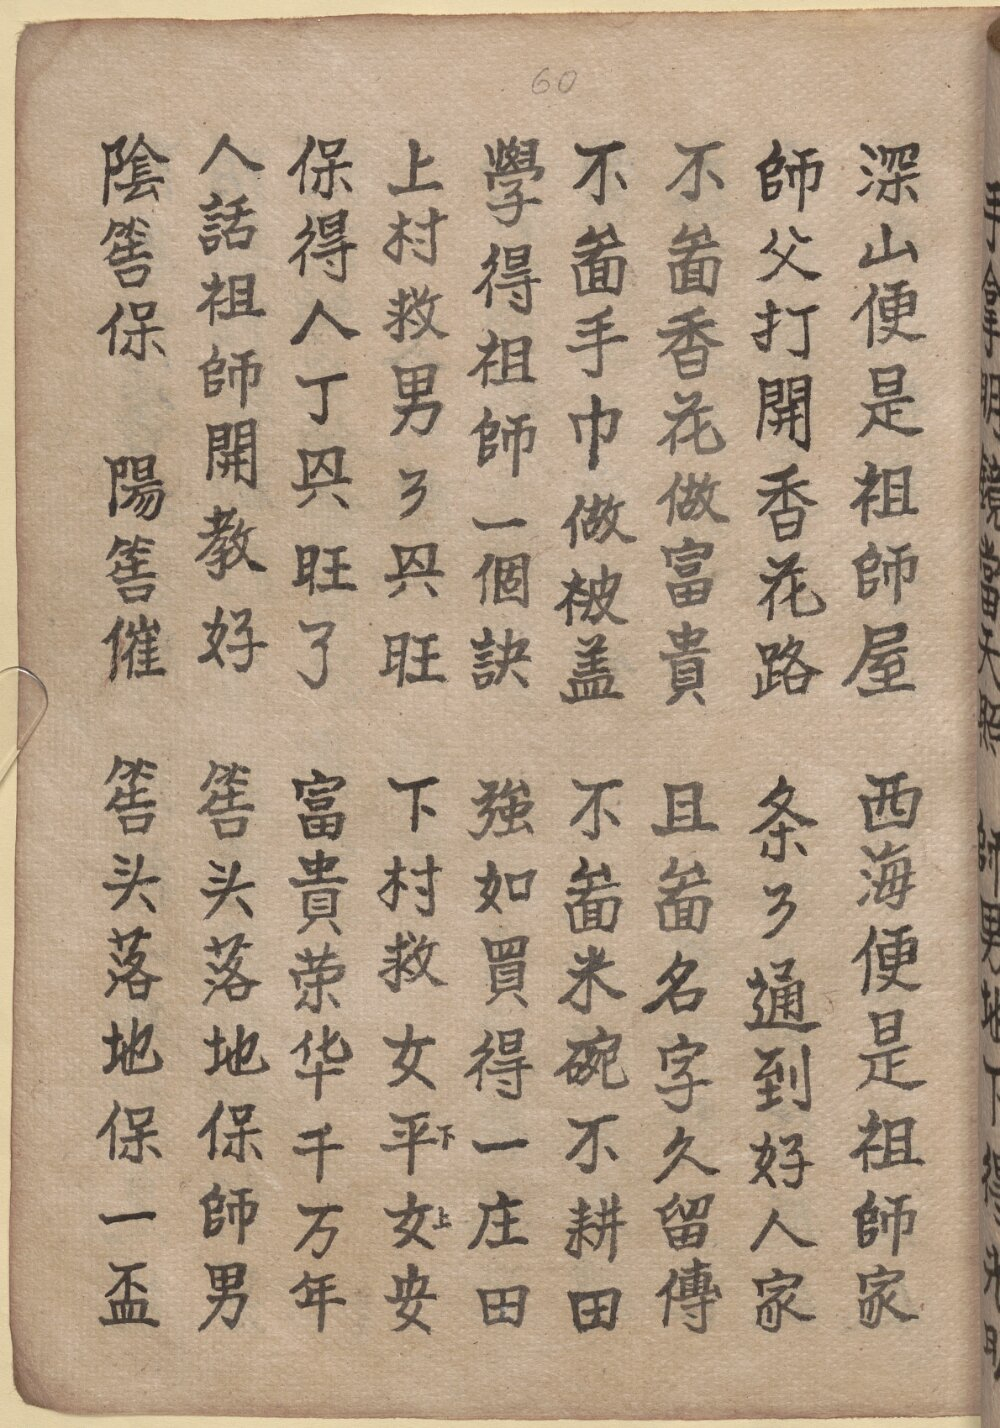 60
深山便是祖師屋 西海便是祖師家
師父打開香花路 条〻通到好人家
不啚香花做富貴 且啚名字久留傳
不啚手巾做被盖 不啚米碗不耕田
學得祖師一個訣 強如買得一庄田
上村救男〻兴旺 下村救女平下女上安
保得人丁兴旺了 富貴荣华千万年
人話祖師開教好 筶头落地保師男
陰筶保 陽筶催 筶头落地保一盃